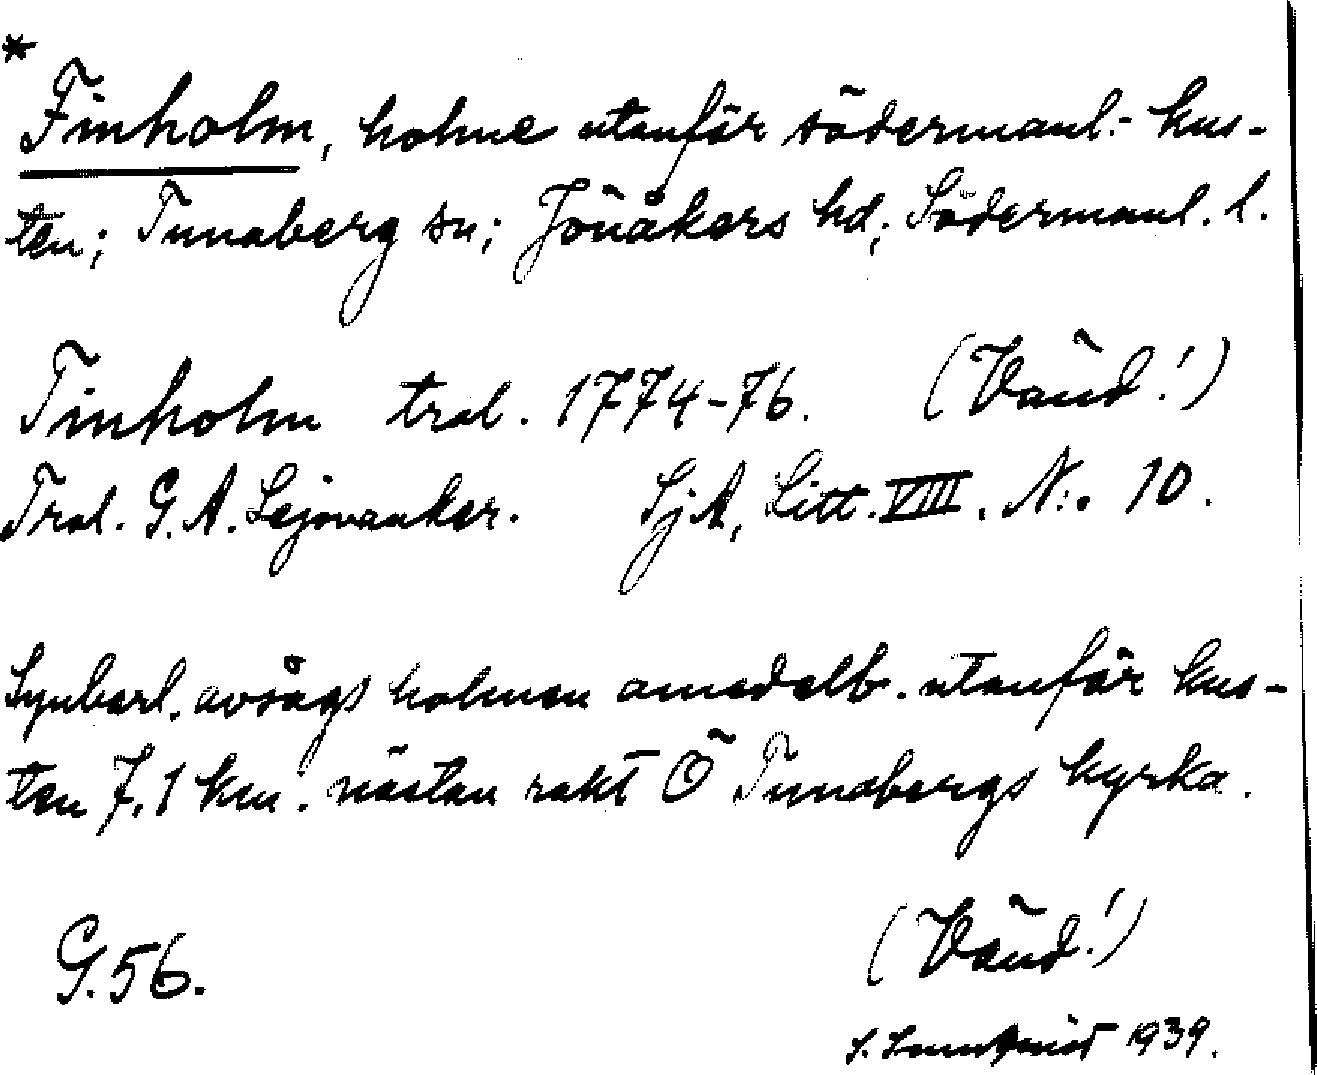 *
Finholm, holme utanför södermanl.- kus-
ten; Tunaberg sn; Jönåkers hd; Södermanl. l.
Tinholm trol. 1774-76. (Vänd!)
Trol. G. A. Lejonanker. SjA, Litt. VIII. N:o 10.
Synbarl. avsågs holmen omedelb. utanför kus-
ten 7,1 km. nästan rakt Ö Tunabergs kyrka.
G. 56. (Vänd!)
S. 1939.